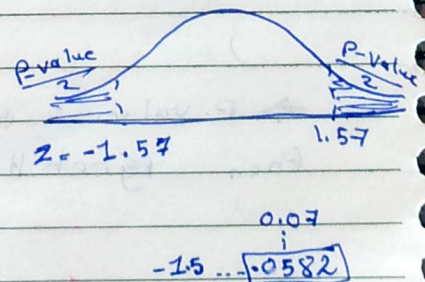 P-value
2
P-value
2
Z = -1.57
1.57
0.07
-1.5 ... .0582